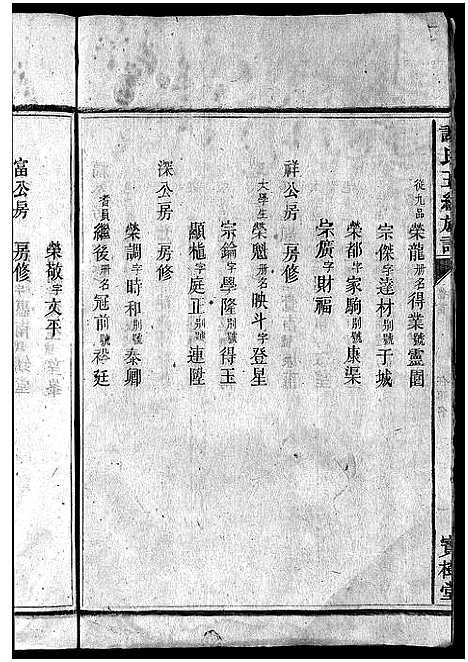 氏五續族譜
寶樹堂
從九品榮龍册名得業號靈園
宗傑字達材別號于城
榮都字家駒別號康渠
宗廣字財福
祥公房 房修
大學生榮魁册名映斗字登星
宗錀字學隆別號得玉
顯植字庭正別號連陞
深公房 房修
榮調字時和別號泰卿
耆員繼後册名冠前號裕廷
富公房 房修
榮敬字文平